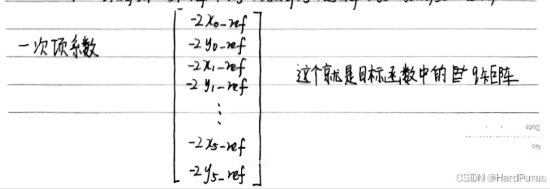 一次项系数
-2x₀-ref
-2y₀-ref
-2x₁-ref
-2y₁-ref
⋮
-2x₅-ref
-2y₅-ref
这个就是目标函数中的 q矩阵
Date
No
CSDN @HardPurus